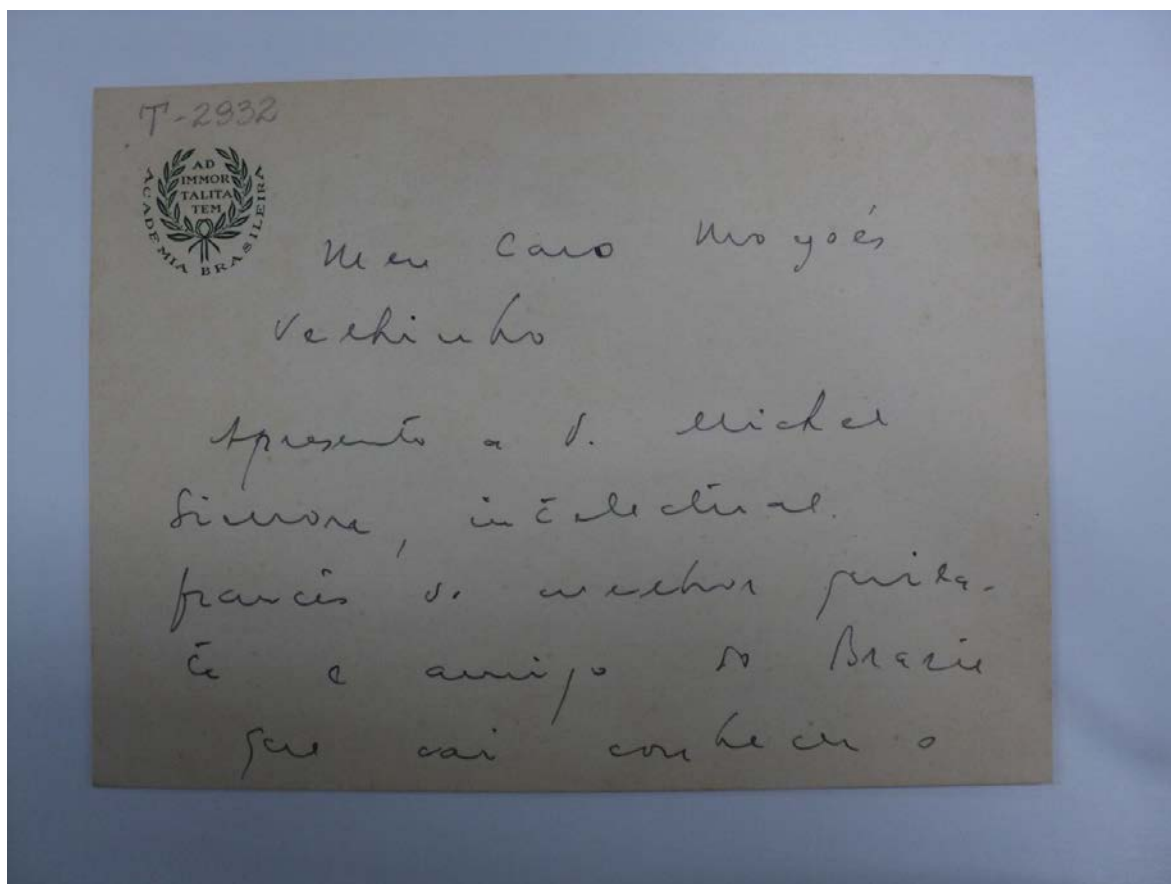 T-2932
AD
IMMOR
TALITA
TEM
ACADEMIA BRASILEIRA
Meu Caro Moysés
Vellinho
Apresento a V. Michel
Simon, intelectual
francês do melhor quila-
te e amigo do Brasil
que vai conhecer o